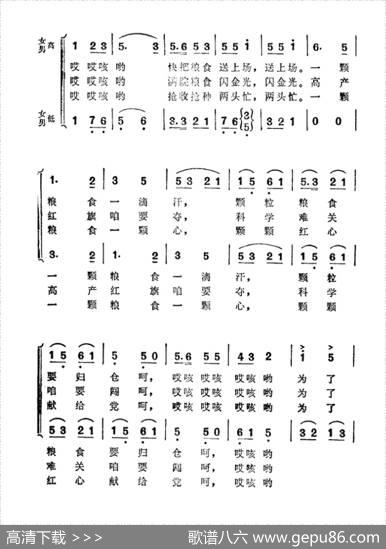 女高
男
1 23 | 5. 3 | 5.6 53 | 55 i | 55 i | 6. 5 |
哎 哎咳 哟 快把 粮食 送上 场, 送上 场。 一 颗
哎 哎咳 哟 满院 粮食 闪金 光, 闪金 光。 高 产
哎 哎咳 哟 抢收 抢种 两头 忙, 两头 忙。 一 颗
女低
男
1 76 | 5 6 | 3.3 21 | 76 5/3 | 321 | 0 0 |
1. 2 | 3 5 | 53 21 | 15 61 | 5.3 21 |
粮 食 一 滴 汗, 颗 粒 粮 食
红 旗 咱 要 夺, 科 学 难 关
粮 食 一 颗 心, 颗 颗 红 心
3. 2 | 1 2 | 3 5 | 53 21 | 15 61 |
一 颗 粮 食 一 滴 汗, 颗 粒
高 产 红 旗 咱 要 夺, 科 学
一 颗 粮 食 一 颗 心, 颗 颗
15 61 | 5 50 | 5.6 55 | 64 32 | 1 5 |
要 归 仓 呵, 哎咳 哎咳 哎咳 哟 为 了
咱 要 闯 呵, 哎咳 哎咳 哎咳 哟 为 了
献 给 党 呵, 哎咳 哎咳 哎咳 哟 为 了
53 21 | 15 61 | 5 50 | 64 32 | 32 13 |
粮 食 要 归 仓 呵, 哎咳 哎咳 哟
难 关 咱 要 闯 呵, 哎咳 哎咳 哟
红 心 献 给 党 呵, 哎咳 哎咳 哟
高清下载 >>> 歌谱八六 www.gepu86.com